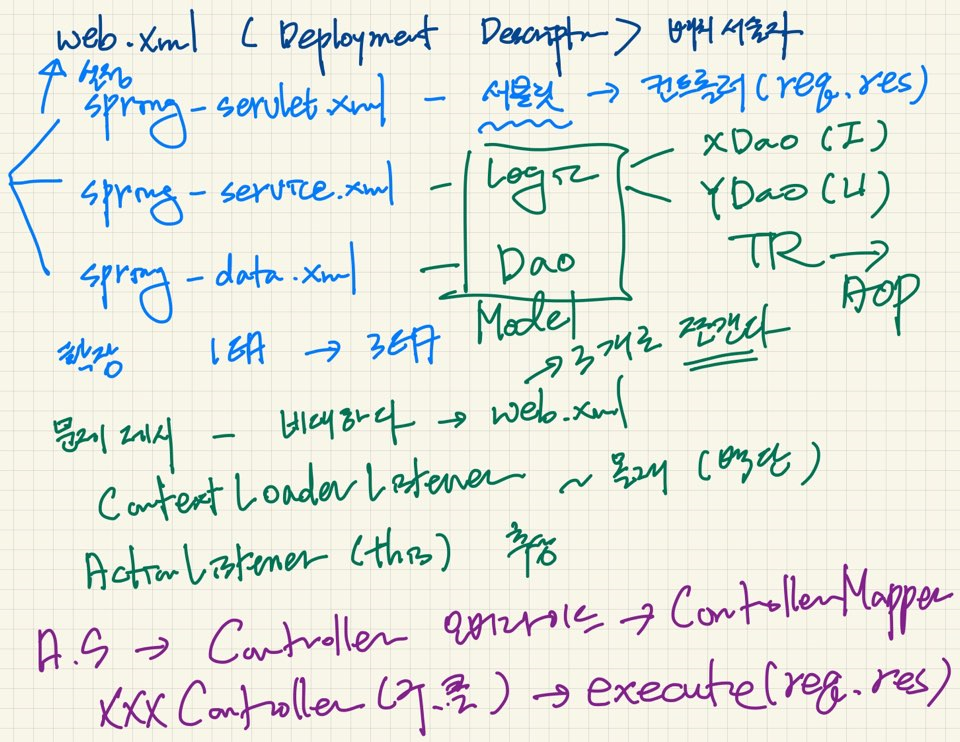 web.xml ( Deployment Descriptor > 배치 서술자
설정
spring-servlet.xml - 서블릿 → 컨트롤러(req.res)
spring-service.xml - Logic XDao(I)
YDao(U)
spring-data.xml - Dao TR → AOP
Model
확장 1EA → 3EA → 3개로 쪼갠다
문제제시 - 비대하다 → web.xml
ContextLoaderListener ~ 몰래 (백단)
ActionListener(this) 추상
A.S → Controller 오버라이드 → ControllerMapper
XXXController(구.클) → execute(req.res)